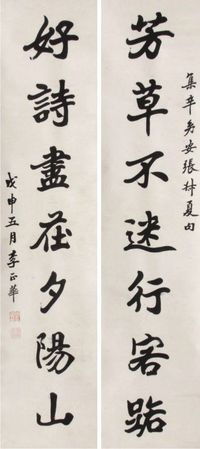 集辛弃安張林夏句
芳草不迷行客路
好詩盡在夕陽山
戊申五月李正華